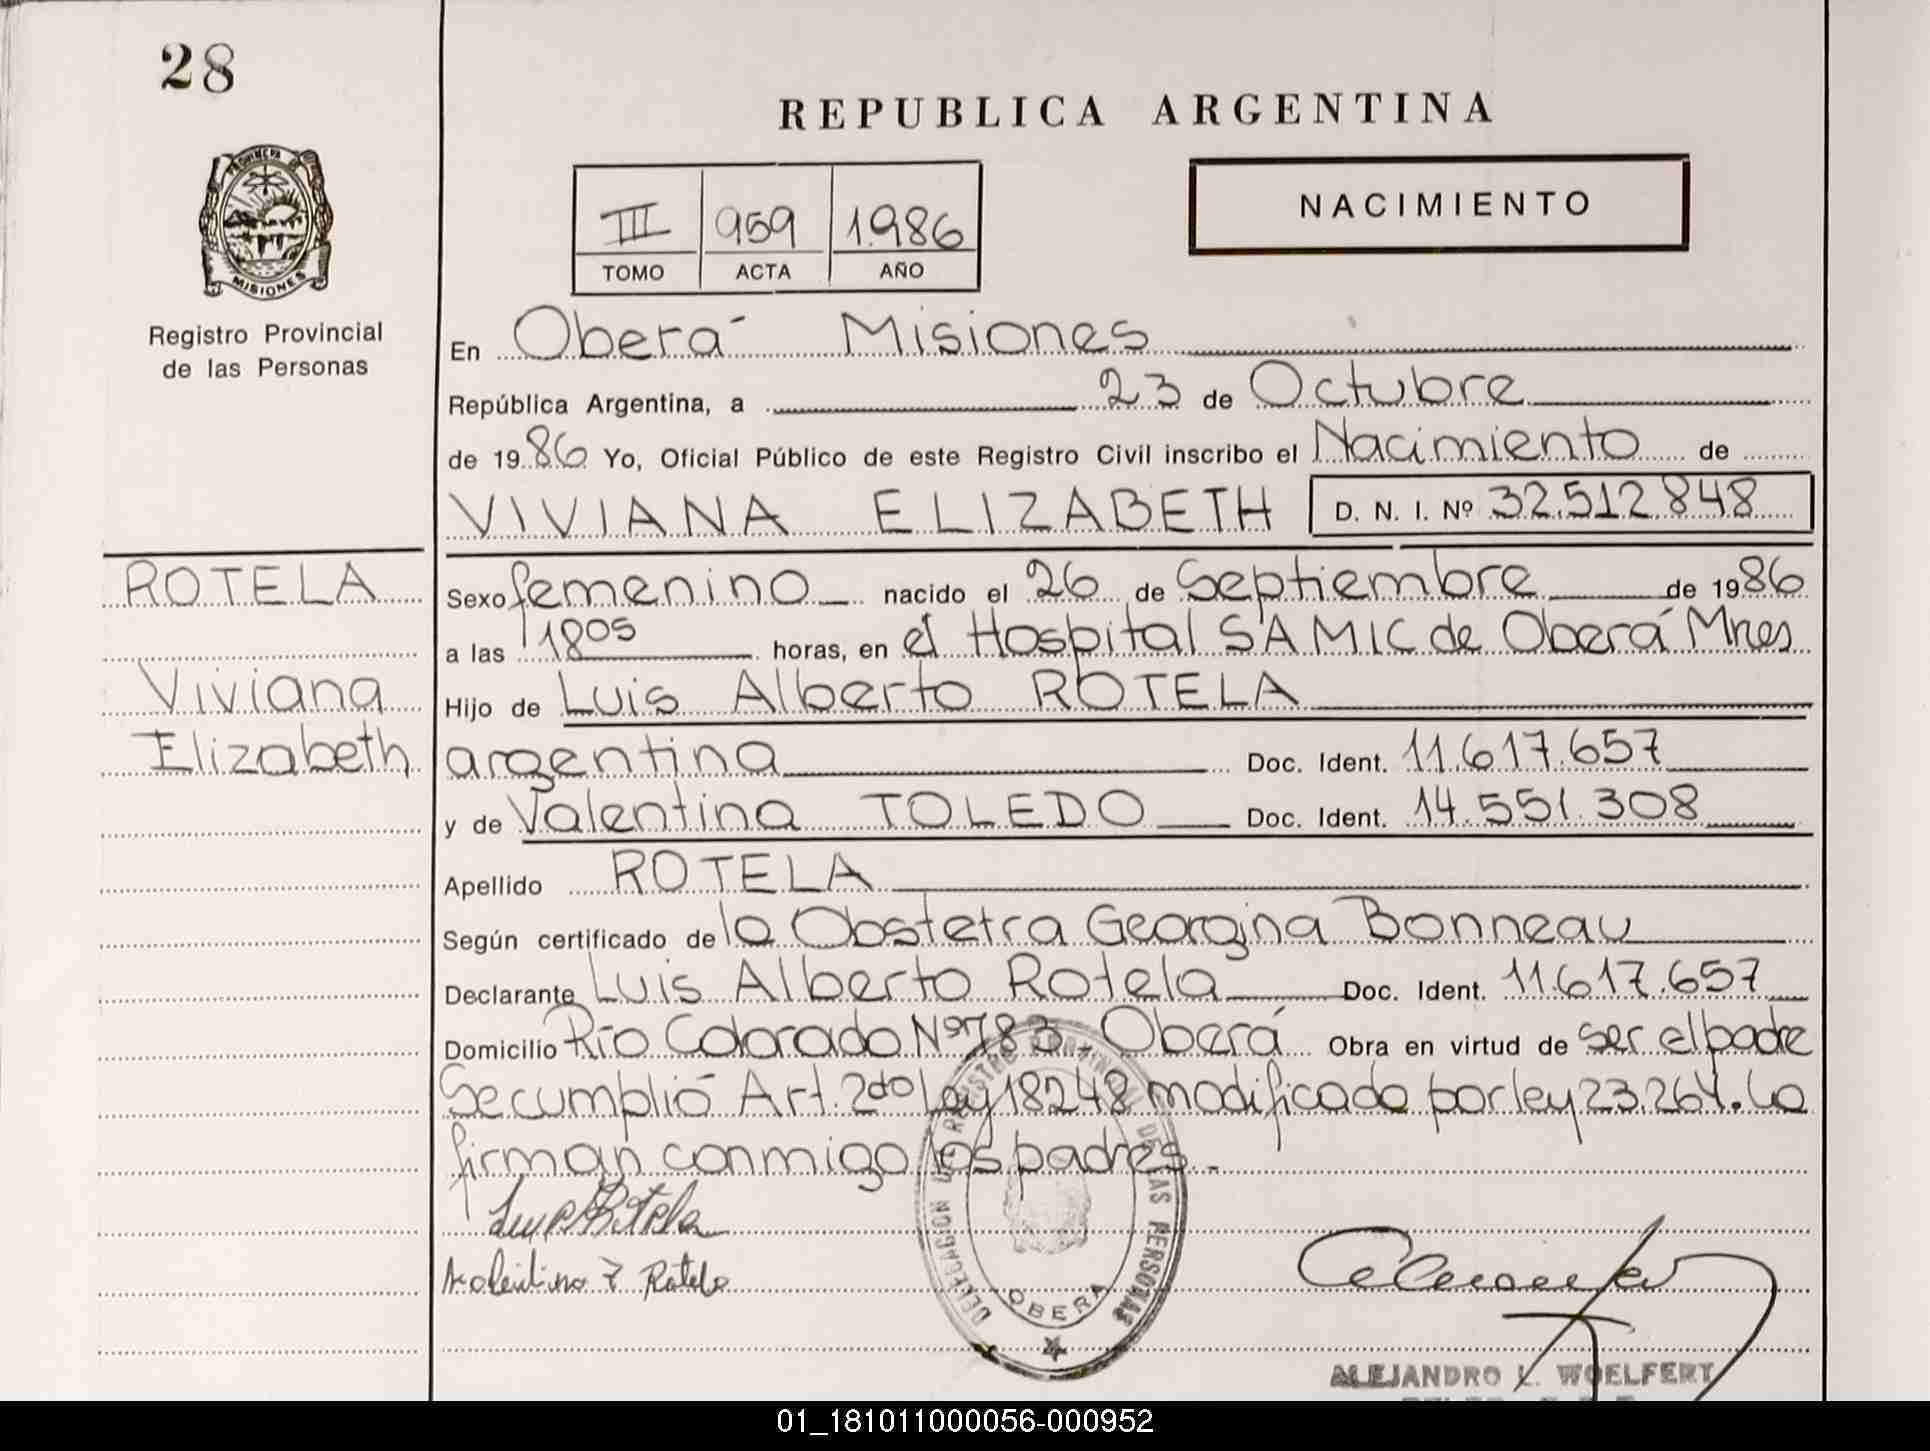 28
REPUBLICA ARGENTINA
PROVINCIA DE
MISIONES
Registro Provincial
de las Personas
III 959 1.986
TOMO ACTA AÑO
NACIMIENTO
En Oberá Misiones
República Argentina, a 23 de Octubre
de 1986 Yo, Oficial Público de este Registro Civil inscribo el Nacimiento de
VIVIANA ELIZABETH D. N. I. Nº 32.512.848
ROTELA
Viviana
Elizabeth
Sexo femenino nacido el 26 de Septiembre de 1986
a las 1805 horas, en el Hospital SAMIC de Oberá Mnes
Hijo de Luis Alberto ROTELA
argentina Doc. Ident. 11.617.657
y de Valentina TOLEDO Doc. Ident. 14.551.308
Apellido ROTELA
Según certificado de la Obstetra Georgina Bonneau
Declarante Luis Alberto Rotela Doc. Ident. 11.617.657
Domicilio Río Colorado Nº 783 Oberá Obra en virtud de ser el padre
Se cumplió Art. 2do Ley 18248 modificado por ley 23.264. La
firman conmigo los padres.-
DELEGACION DE REGISTRO PROVINCIAL DE LAS PERSONAS
OBERA
ALEJANDRO L. WOELFERT
01_181011000056-000952